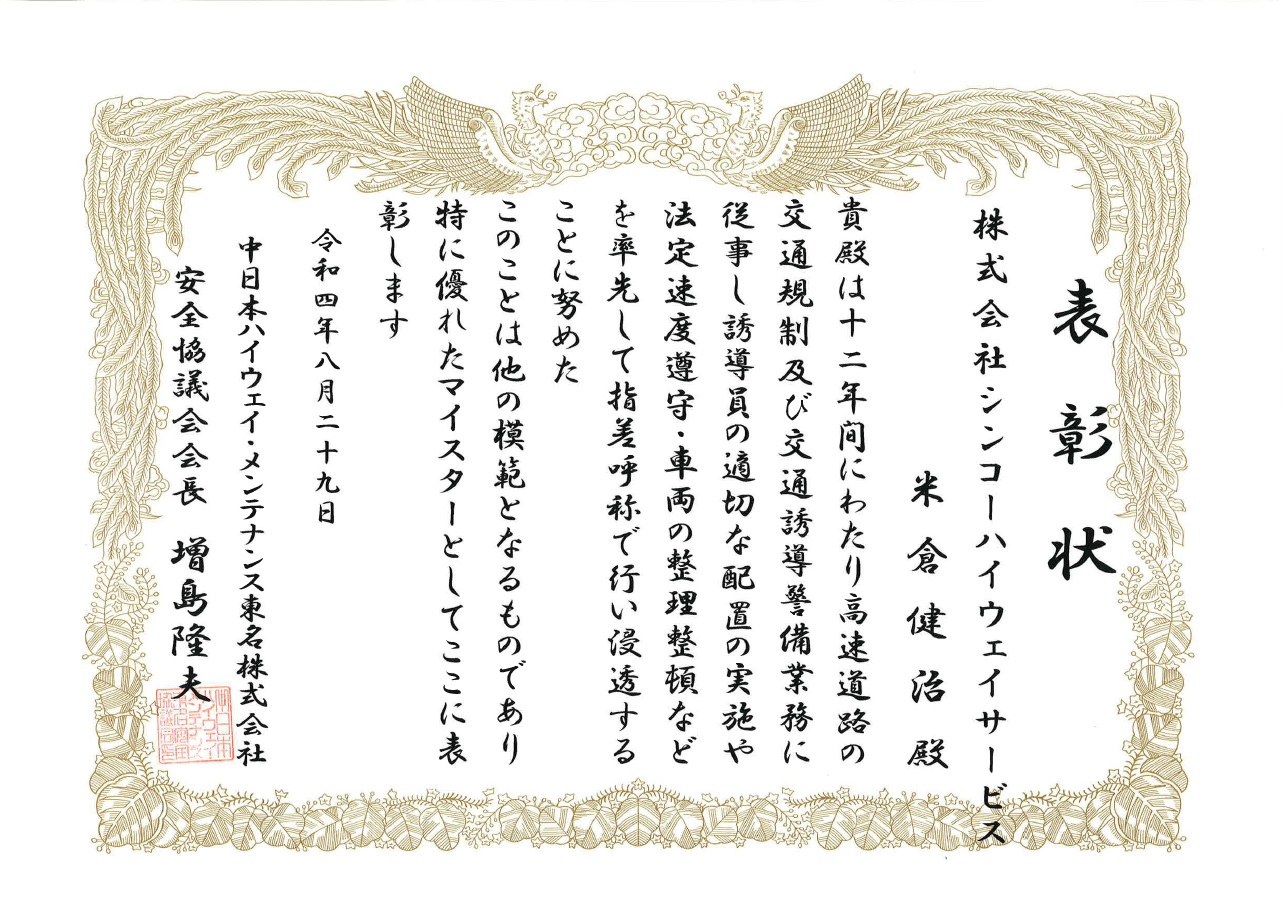 表彰状
株式会社シンコーハイウェイサービス
米倉健治殿
貴殿は十二年間にわたり高速道路の
交通規制及び交通誘導警備業務に
従事し誘導員の適切な配置の実施や
法定速度遵守・車両の整理整頓など
を率先して指差呼称で行い浸透する
ことに努めた
このことは他の模範となるものであり
特に優れたマイスターとしてここに表
彰します
令和四年八月二十九日
中日本ハイウェイ・メンテナンス東名株式会社
安全協議会会長 増島隆夫